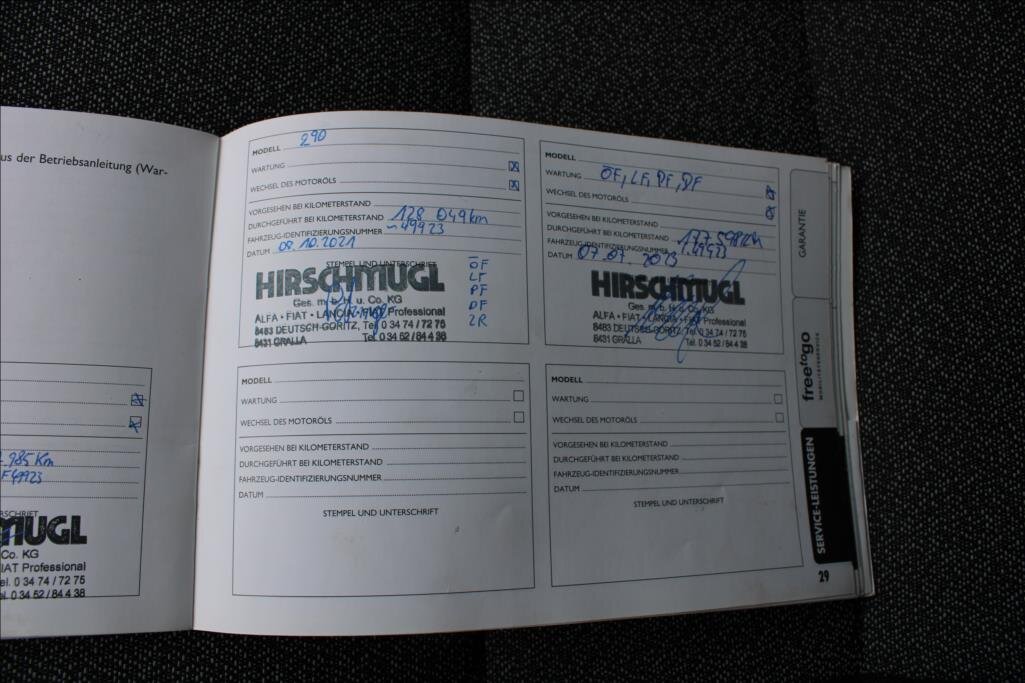 us der Betriebsanleitung (War-
985 Km
F49923
MUGL
Co. KG
IAT Professional
el. 0 34 74 / 72 75
el. 0 34 52 / 84 4 38
MODELL 290
WARTUNG
WECHSEL DES MOTORÖLS
VORGESEHEN BEI KILOMETERSTAND
DURCHGEFÜHRT BEI KILOMETERSTAND 128 049 km
FAHRZEUG-IDENTIFIZIERUNGSNUMMER ~49923
DATUM 08.10.2021
STEMPEL UND UNTERSCHRIFT
HIRSCHMUGL
Ges. m. b. H. u. Co. KG
ALFA • FIAT • LANCIA • FIAT Professional
8483 DEUTSCH-GORITZ, Tel. 0 34 74 / 72 75
8431 GRALLA Tel. 0 34 52 / 84 4 38
ÖF
LF
PF
DF
ZR
MODELL
WARTUNG ÖF, LF, PF, DF
WECHSEL DES MOTORÖLS
VORGESEHEN BEI KILOMETERSTAND
DURCHGEFÜHRT BEI KILOMETERSTAND 177 598 km
FAHRZEUG-IDENTIFIZIERUNGSNUMMER 49923
DATUM 07.07. 2023
HIRSCHMUGL
Ges. m. b. H. u. Co. KG
ALFA • FIAT • LANCIA • FIAT Professional
8483 DEUTSCH-GORITZ, Tel. 0 34 74 / 72 75
8431 GRALLA Tel. 0 34 52 / 84 4 38
MODELL
WARTUNG
WECHSEL DES MOTORÖLS
VORGESEHEN BEI KILOMETERSTAND
DURCHGEFÜHRT BEI KILOMETERSTAND
FAHRZEUG-IDENTIFIZIERUNGSNUMMER
DATUM
STEMPEL UND UNTERSCHRIFT
MODELL
WARTUNG
WECHSEL DES MOTORÖLS
VORGESEHEN BEI KILOMETERSTAND
DURCHGEFÜHRT BEI KILOMETERSTAND
FAHRZEUG-IDENTIFIZIERUNGSNUMMER
DATUM
STEMPEL UND UNTERSCHRIFT
GARANTIE
freetogo
MOBILITÄTSSERVICE
SERVICE-LEISTUNGEN
29